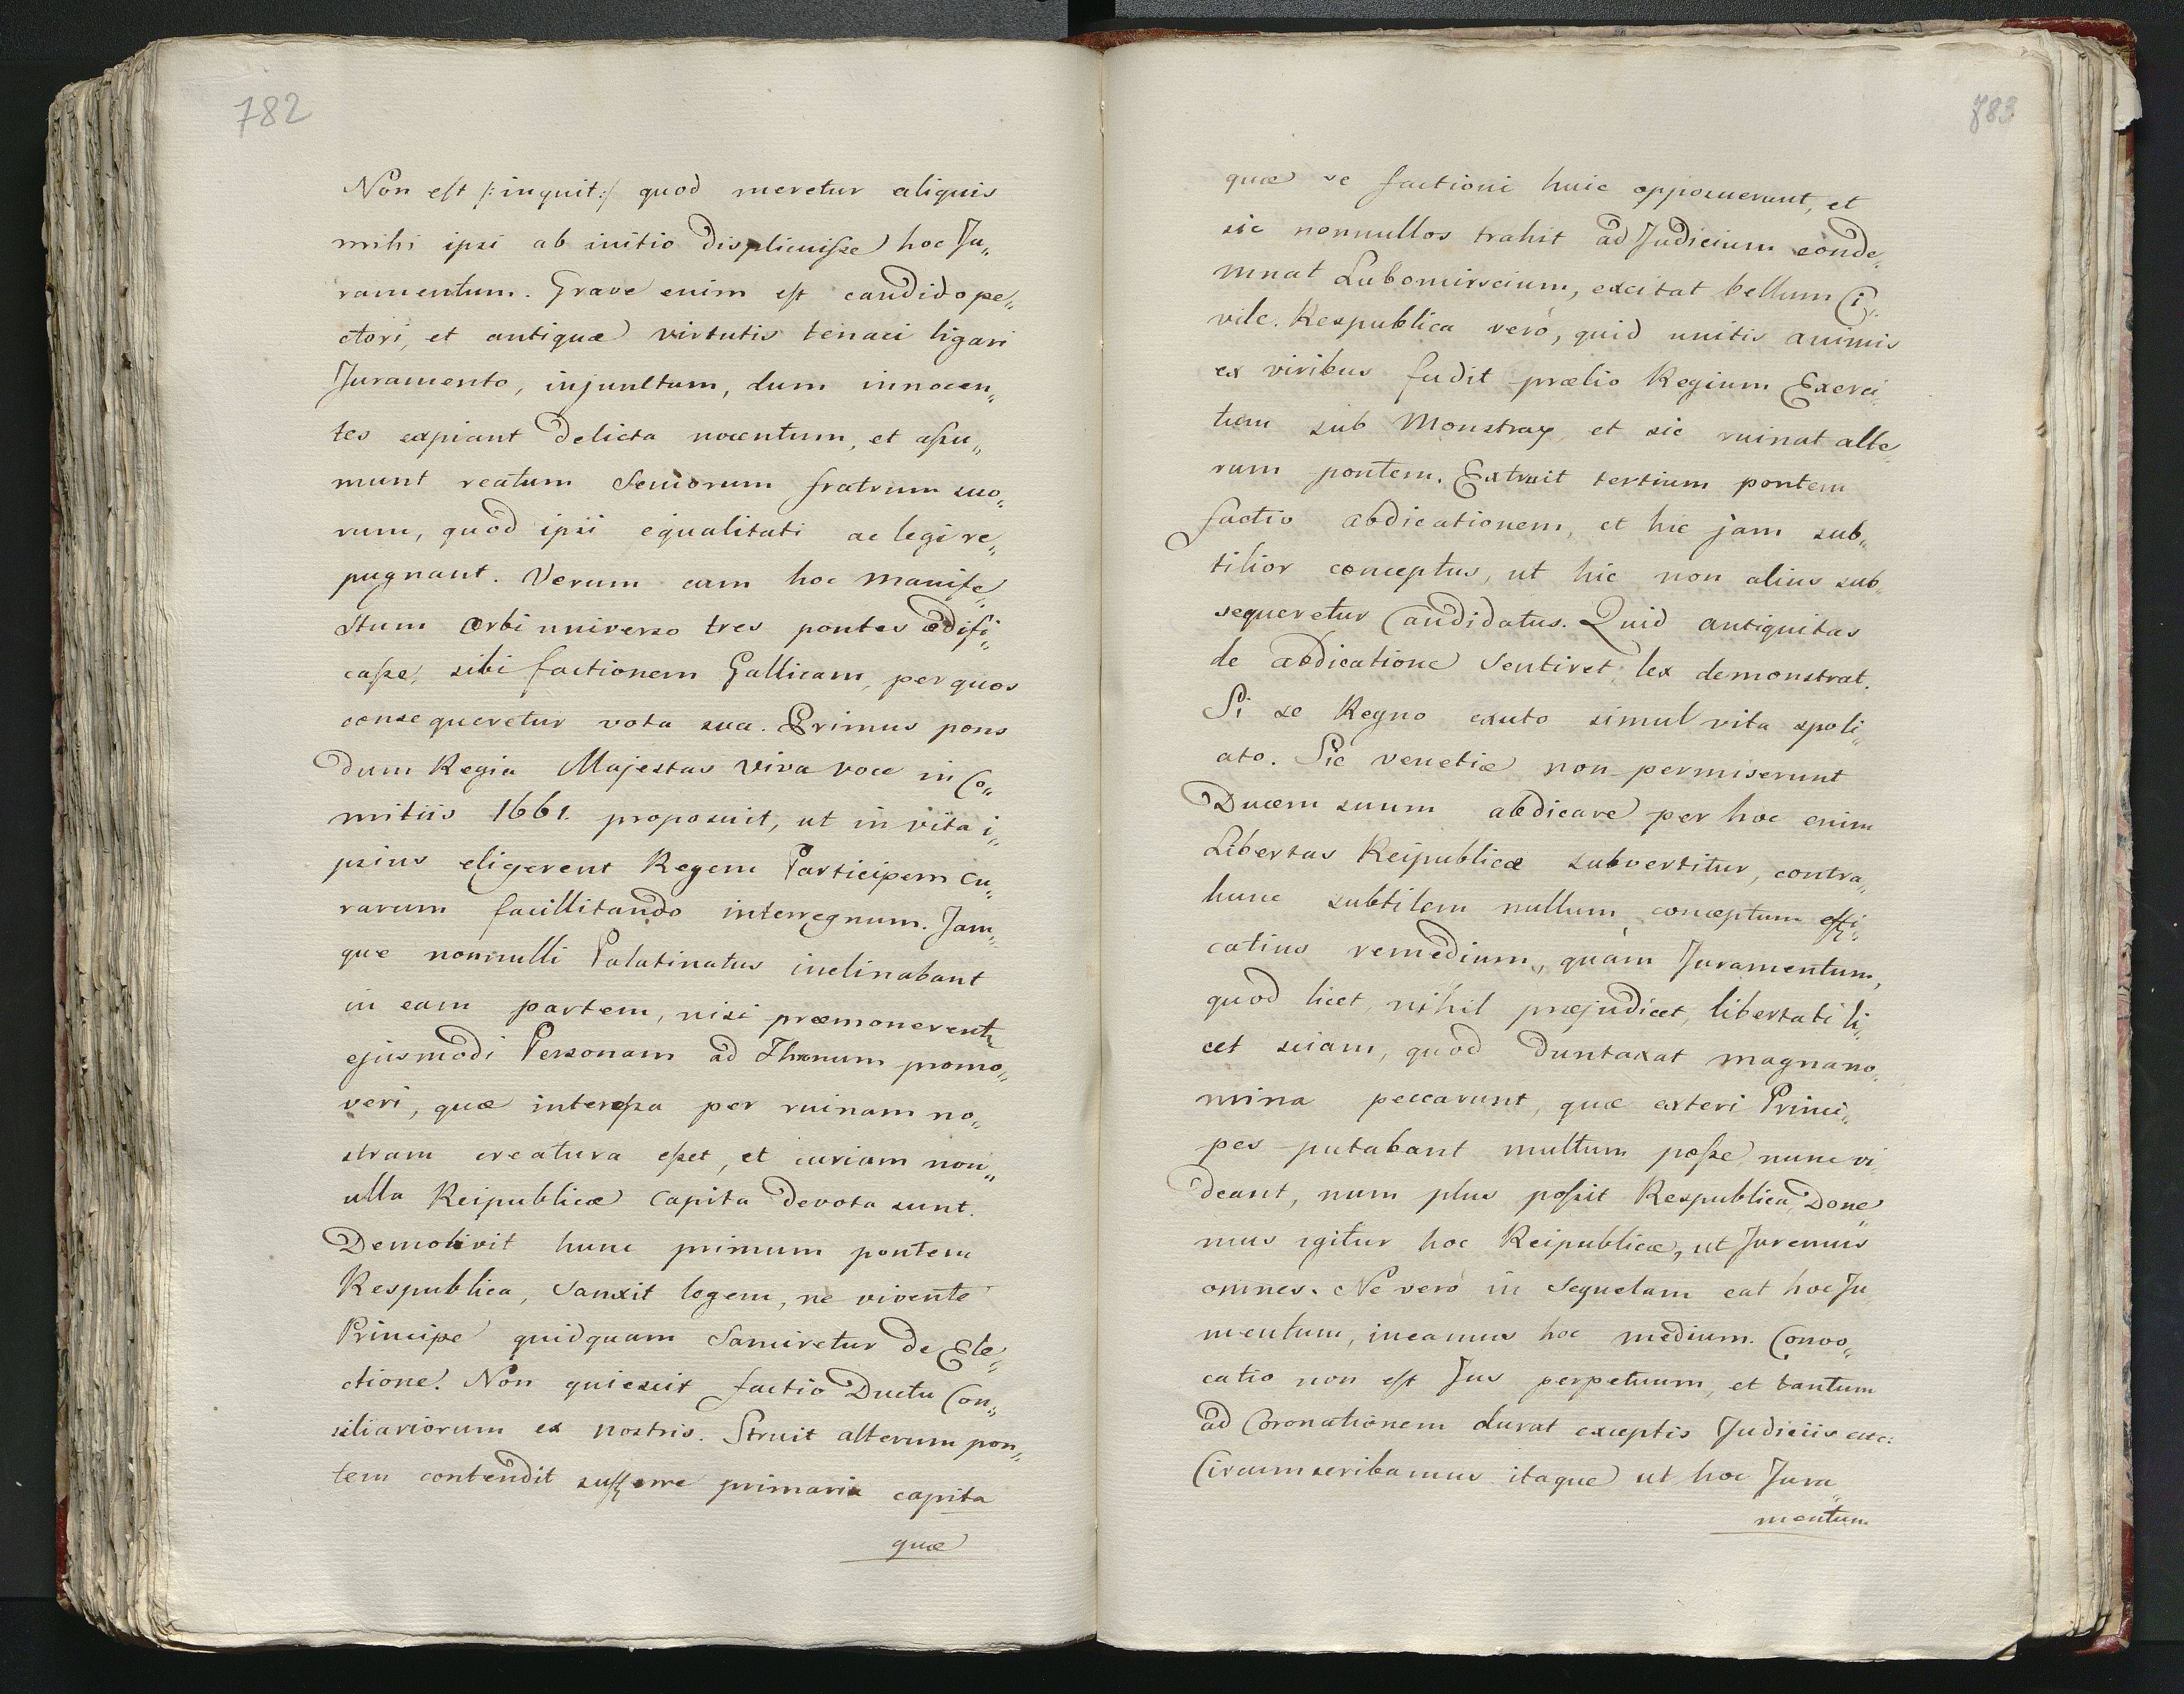 782
Non est /: inquit :/ quod meretur aliquis
mihi ipsi ab initio displicuisse hoc Ju„
ramentum. Grave enim est candido pe„
ctori, et antiquæ virtutis tenaci ligari
Juramento, injunctum, dum innocen„
tes expiant delicta nocentum, et assu„
munt reatum Seniorum fratrum suo„
rum, quod ipsi equalitati ac legi re„
pugnant. Verum cum hoc manife„
stum Orbi universo tres pontes ædifi„
casse, sibi factionem Gallicam, per quos
consequeretur vota sua. Primus pons
dum Regia Majestas viva voce in Co„
mitiis 1661. proposuit, ut in vita i„
psius eligerent Regem Participem cu„
rarum facillitando interregnum. Jam„
que nonnulli Palatinatus inclinabant
in eam partem, nisi præmonerent
ejusmodi Personam ad Thronum promo„
veri, quæ interessa per ruinam no„
stram creatura esset, et curiam non„
ulla Reipublicæ Capita devota sunt.
Demolivit hunc primum pontem
Respublica, Sanxit legem, ne vivente
Principe quidquam Sanciretur de Ele„
ctione. Non quiescit factio Ductu Con„
siliariorum ex nostris. Struit alterum pon„
tem contendit sufferre primaria capita
quæ
783
quæ se factioni huic opposuerunt, et
sic nonnullos trahit ad Judicium conde„
mnat Lubomirscium, excitat bellum Ci„
vile. Respublica verò, quid unitis animis
ex viribus fudit prælio Regium Exerci„
tum sub Monstray et sic ruinat alte„
rum pontem. Extruit tertium pontem
factio abdicationem, et hic jam sub„
tilior conceptus, ut hic non alius sub„
sequeretur Candidatus. Quid antiquitas
de abdicatione Sentiret, lex demonstrat.
Si se Regno exuto simul vita spoli„
ato. Sic venetiæ non permiserunt
Ducem suum abdicare per hoc enim
Libertas Reipublicæ subvertitur, contra„
hunc subtilem nullum conceptum effi„
catius remedium, quàm Juramentum,
quod licet nihil præjudicet libertati li„
cet sciam, quod duntaxat magna no„
mina peccarunt, quæ exteri Princi„
pes putabant multum posse, nunc vi„
deant, num plus possit Respublica, Done„
mus igitur hoc Reipublicæ, ut Juremus
omnes. Ne verò in Sequelam eat hoc Ju„
mentum, ineamus hoc medium. Convo„
catio non est Jus perpetuum, et tantum
ad Coronationem durat exceptis Judiciis etc:
Circumscribamus itaque ut hoc Jura„
mentum